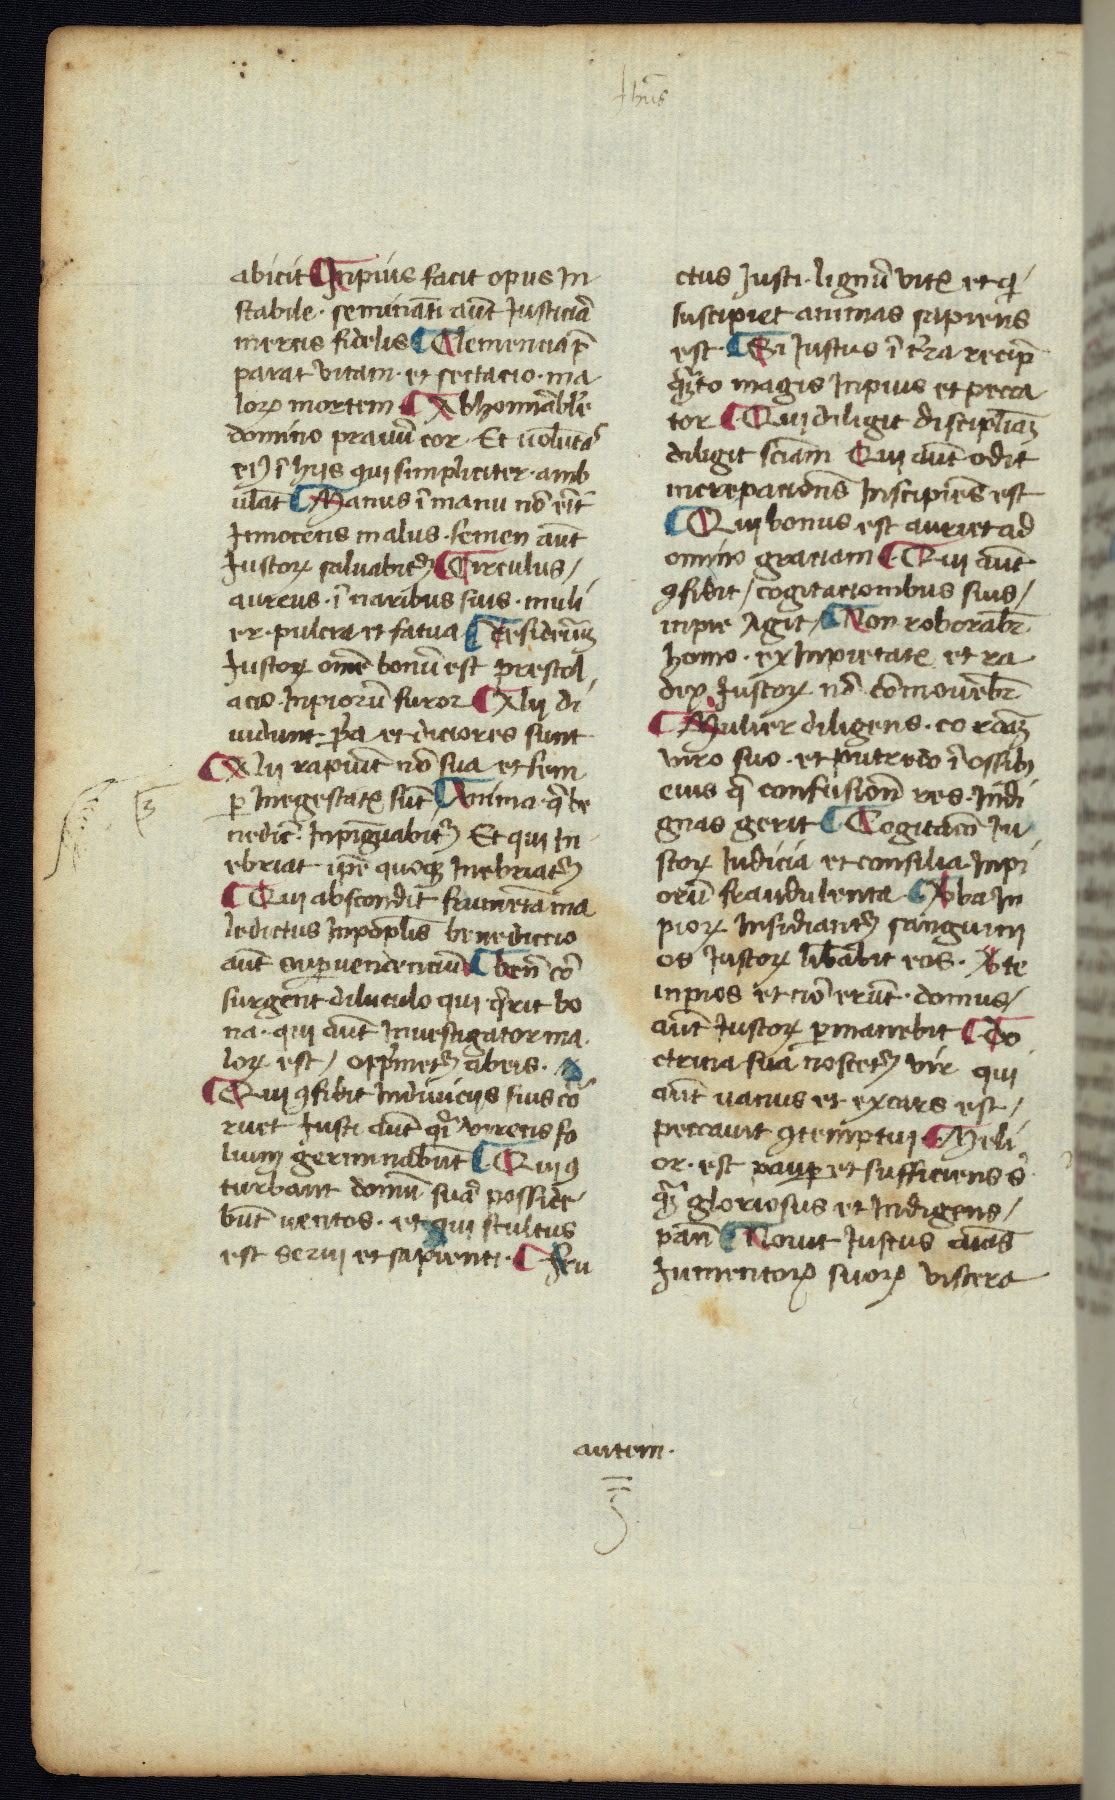 ihūs
abicit ¶ Inpius facit opus in
stabile · semināti aūt Justiciā
merces fidelis ¶ Clemencia p̄
parat vitam · et sectacio · ma
loꝝ mortem ¶ Abhomīable
domino pravū cor · Et uolūtas
eiꝰ ī hijs qui simpliciter · amb
ulāt ¶ Manus ī manu nō erīt
Innocens malus · semen aūt
Justoꝝ saluabitᷣ ¶ Circulus /
aureus · ī naribus suis · muli
er · pulcra et fatua ¶ Desideriū
Justoꝝ om̄e bonū est prestol
acio · Inpiorū furor ¶ Alij di
uidunt · p̄pa et diciores sunt
¶ Alij rapiūt nō sua et sem
ꝑ In egestate sūt ¶ Anima · q̄ be
nedic̄ · Inpīguabitᷣ Et qui In
ebriat ip̄e quoqꝫ Inebriatᷣ
¶ Qui abscondit frumēta ma
ledictus In pop̄lis benediccio
aūt super uendenciū ¶ Ben̄ cō
surgent diluculo qui q̄rit bo
na · qui aūt Inuestigator ma
loꝝ est / opp̄metᷣ ab eis ·
¶ Qui ꝯfidit In diuicijs suis cō
ruet Justi aūt q̄i virens fo
lium germinabūt ¶ Qui ꝯ
turbant domū suā posside
būt uentos · et qui stultus
est seruj et sapienti · ¶ Fru
ctus Justi · lignū vite et qi
suscipiet animas sapiens
est ¶ Si Justus ī t̄ra recip̄
q̄nto magis Inpius et pecca
tor ¶ Qui diligit disciplīam
diligit sciām Qui aūt odit
increpacionē Insipiens est
¶ Qui bonus est auriet a d
omino graciam ¶ Qui aūt
ꝯfidit / cogitacionibus suis /
inpie Agit / ¶ Non roborabr̄
homo · ex Inpietate et ra
dix Justoꝝ nō cōmouebr̄
¶ Mulier diligens · corōa
viro suo · et putredo ī ossibꝫ
eius q̄ confusionē res · Indi
gnas gerit ¶ Cogitacō Ju
stoꝝ Iudicia et consilia Inpi
orū fraudulenta ¶ Vba In
pioꝝ Insidiantᷣ sanguinj
os Justoꝝ libabit eos · Vte
inpios et nō erūt · domus /
aūt Justoꝝ permanebit ¶ Do
ctrina suā noscetᷣ vir qui
aūt uanus et excors est /
peccauit ꝯtemptuj ¶ Meli
or · est pauꝑ et sufficiens s̄
q̄m gloriosus et Indigens /
pan̄ ¶ Nouit Justus aīas
Jumentoꝝ suoꝝ viscera
autem ·